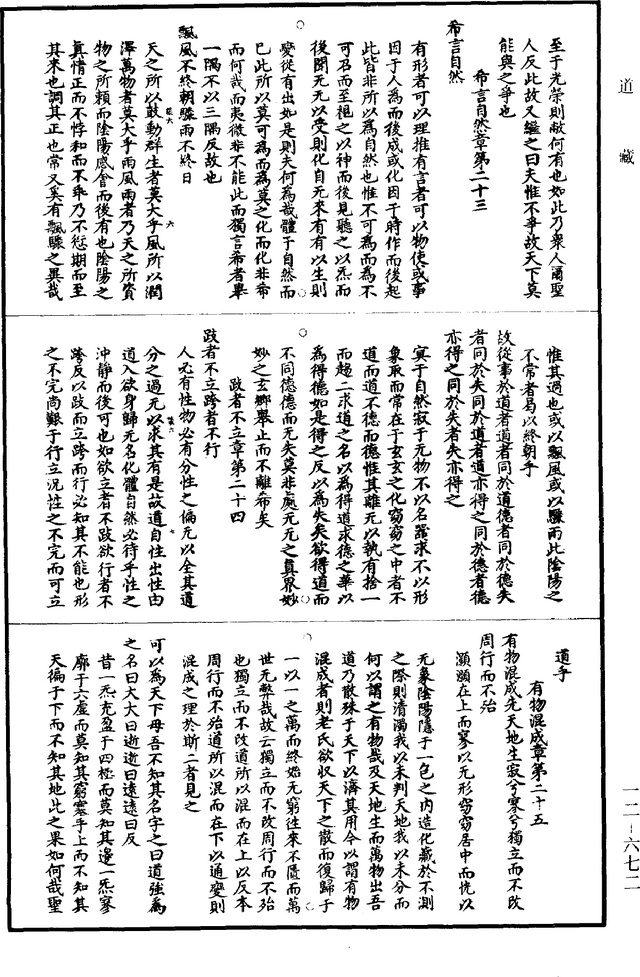 道藏
至于光榮則敵何有也如此乃衆人爾聖
人反此故又繼之曰夫惟不爭故天下莫
能與之爭也
希言自然章第二十三
希言自然
有形者可以理推有言者可以物使或事
因于人為而後成或化因于時作而後起
此皆非所以為自然也惟不可為而為不
可召而至極之以神而後見聽之以炁而
後聞无无以受則化自无來有有以生則
變從有出如是則夫何為哉體于自然而
已此所以莫可為而為莫之化而化非希
而何哉而夷微非不能此而獨言希者舉
一隅不以三隅反故也
飄風不終朝驟雨不終日
天之所以鼓動群生者莫大乎風所以潤
澤萬物者莫大乎雨風雨者乃天之所資
物之所賴而陰陽感會而後有也陰陽之
眞情正而不悖和而不乖乃不愆期而至
其來也調其正也常又奚有飄驟之異哉
惟其過也或以飄風或以驟雨此陰陽之
不常者曷以終朝乎
故從事於道者道者同於道德者同於德失
者同於失同於道者道亦得之同於德者德
亦得之同於失者失亦得之
寞于自然寂于无物不以名器求不以形
象取而常在于玄玄之化窈窈之中者不
道而道不德而德惟其離无以執有捨一
而趨二求道之名以為得道求德之華以
為得德如是得之反以為失矣欲得道而
不同德德而无失莫非處无无之眞界妙
妙之玄鄉舉止而不離希矣
跂者不立章第二十四
跂者不立跨者不行
人必有性物必有分性之偏无以全其道
分之過无以求其有是故道自性出性由
道入欲身歸无名化體自然必待乎性之
沖靜而後可也如欲立者不跂欲行者不
跨反以跂而立跨而行必知其不能也形
之不完尚艱于行立況性之不完而可立
道乎
有物混成章第二十五
有物混成先天地生寂兮寥兮獨立而不改
周行而不殆
灝灝在上而寥以无形窈窈居中而恍以
无象陰陽隱于一包之內造化藏於不測
之際則清濁我以未判天地我以未分而
何以謂之有物哉及天地生而萬物出吾
道乃散殊于天下以濟其用令以謂有物
混成者則老氏欲收天下之散而復歸于
一以一之萬而終始无窮徃來不匱而萬
世无弊哉故云獨立而不改周行而不殆
也獨立而不改道所以混而在上以反本
周行而不殆道所以混而在下以通變則
混成之理於斯二者見之
可以為天下母吾不知其名字之曰道強為
之名曰大大曰逝逝曰遠遠曰反
昔一炁充盈于四極而莫知其邊一炁寥
廓于六虛而莫知其窮窿乎上而不知其
天徧于下而不知其地此之果如何哉聖
一二-六七二